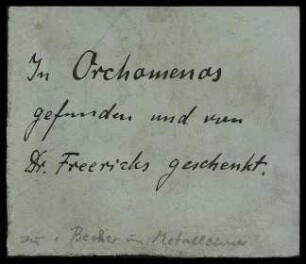 In Orchomenos
gefunden und von
Dr. Freericks geschenkt.
Becher im Metalleimer